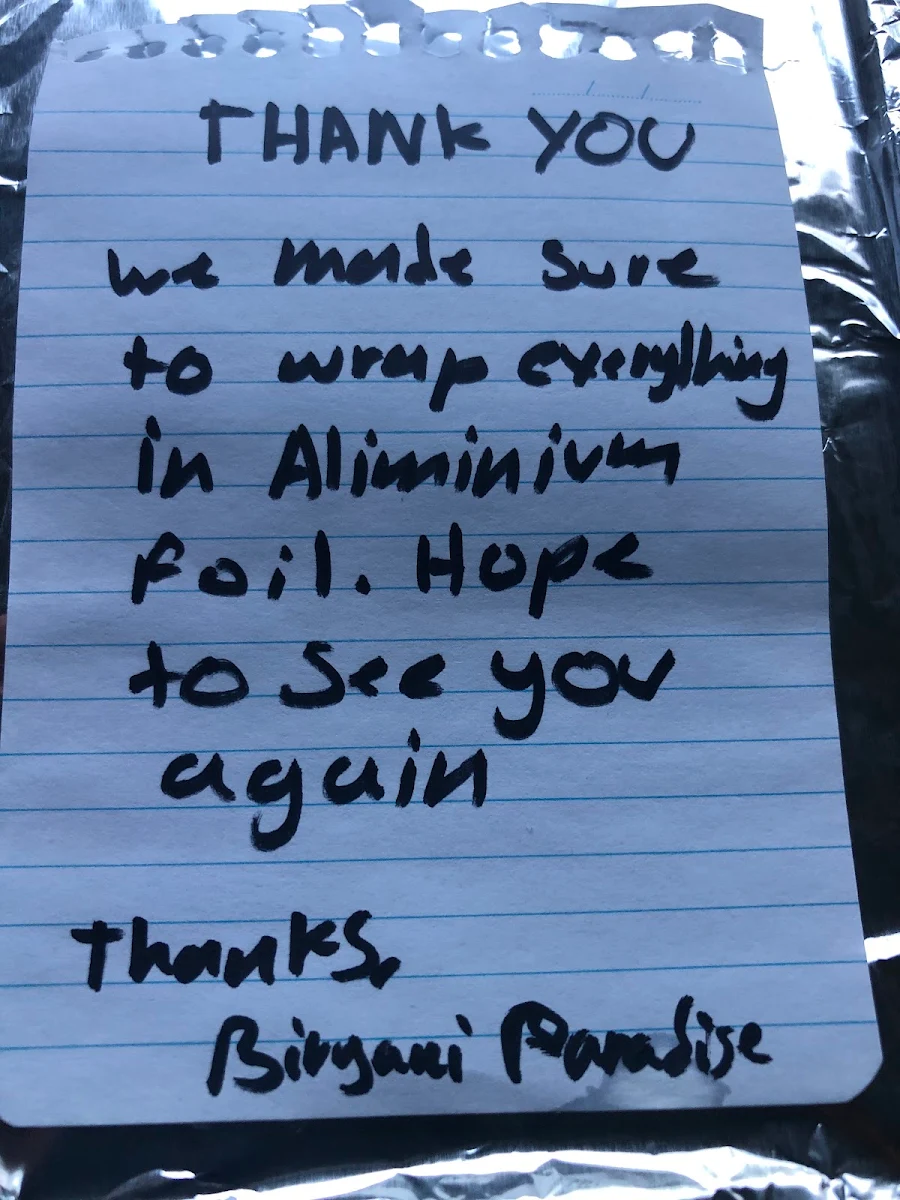 THANK YOU
we made sure
to wrap everything
in Aliminium
foil. Hope
to see you
again
Thanks,
Biryani Paradise